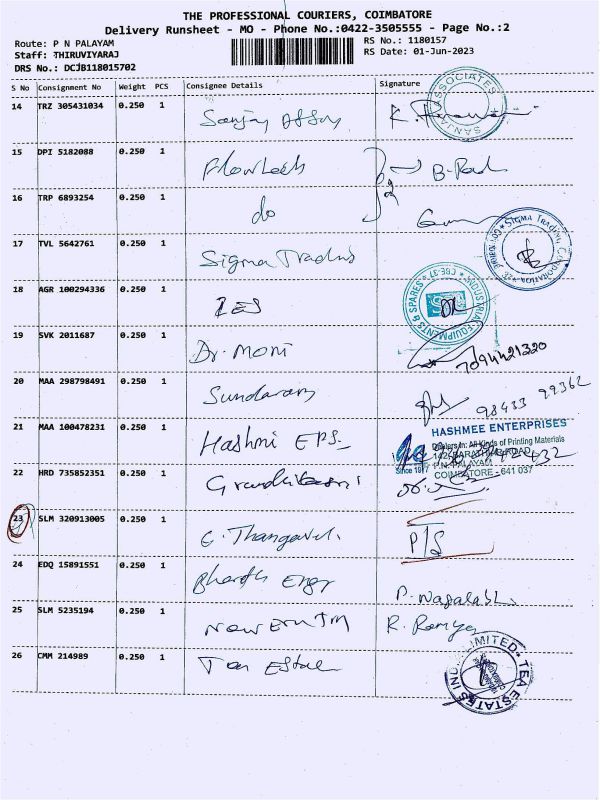 THE PROFESSIONAL COURIERS, COIMBATORE
Delivery Runsheet - MO - Phone No.:0422-3505555 - Page No.:2
Route: P N PALAYAM
RS No.: 1180157
Staff: THIRUVIYARAJ
RS Date: 01-Jun-2023
DRS No.: DCJB118015702
S No Consignment No Weight PCS Consignee Details Signature
14 TRZ 305431034 0.250 1 Sanjay Assoy
SANJAY ASSOCIATES
15 DPI 5182088 0.250 1 Flowtech
16 TRP 6893254 0.250 1 do
17 TVL 5642761 0.250 1 Sigma Traders
Sigma Trading Corporation
18 AGR 100294336 0.250 1 IES
INDUSTRIAL EQUIPMENTS & SPARES * CBE-37
19 SVK 2011687 0.250 1 Dr. Moni 7094421320
20 MAA 298798491 0.250 1 Sundaram 98433 99362
21 MAA 100478231 0.250 1 Hashmi EPS
HASHMEE ENTERPRISES
Dealers in: All Kinds of Printing Materials
142, BARATHI ROAD,
P.N. PALAYAM
Since 1977 COIMBATORE - 641 037
22 HRD 735852351 0.250 1
23 SLM 320913005 0.250 1 E. Thangavel. P/S
24 EDQ 15891551 0.250 1 Bharath Engr P. Nagalakshmi
25 SLM 5235194 0.250 1 R. Ramya
26 CMM 214989 0.250 1 Tea Estate
TEA ESTATES INDIA LIMITED